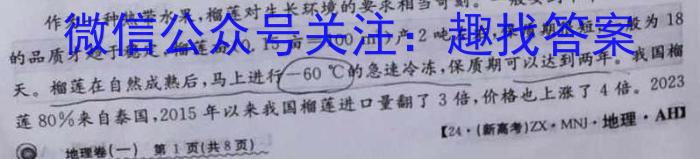 作为一种热带水果，榴莲对生长环境的要求相当苛刻。一般要到
微信公众号关注：趣找答案
的品质才趋于稳定，榴莲 0.15 产2吨 保质期 短 般为18
天。榴莲在自然成熟后，马上进行－60 ℃的急速冷冻，保质期可以达到两年。我国榴
莲80%来自泰国，2015年以来我国榴莲进口量翻了3倍，价格也上涨了4倍。2023
地理卷(一) 第1页(共8页)
【24·(新高考)ZX·MNJ·地理·AH】